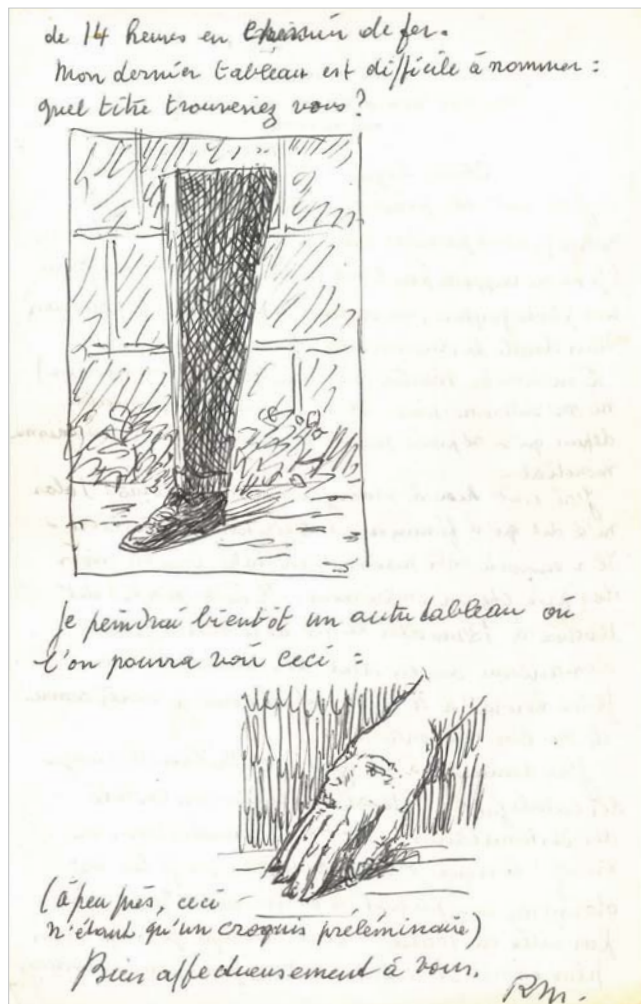 de 14 heures en chemin de fer.
Mon dernier tableau est difficile à nommer :
quel titre trouveriez vous ?
Je peindrai bientôt un autre tableau où
l'on pourra voir ceci :
(à peu près, ceci
n'étant qu'un croquis préleminaire)
Bien affectueusement à vous.
RM.